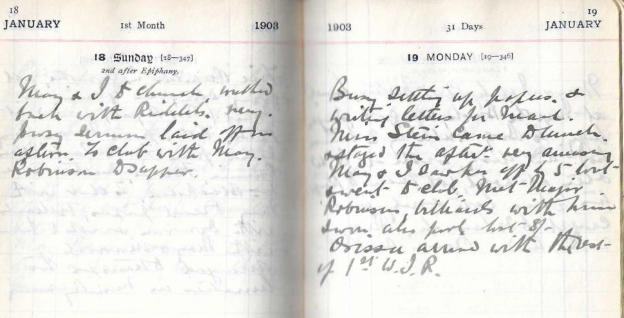 18
JANUARY 1st Month 1903
18 Sunday [18—347]
2nd after Epiphany.
May & I to church, walked
back with Riddels. very
sermon laid off in
To club with May.
Robinson to supper.
19
1903 31 Days JANUARY
19 MONDAY [19—346]
Busy setting up papers &
writing letters for mail.
Miss Stein came to lunch.
& stayed the aftn. very amusing
May & I off @ 5 but
went to club. Met Major
Robinson, billiards with him
& won, also pool lost 8/-
Orissa arrived with the rest
of 1st W.I.R.